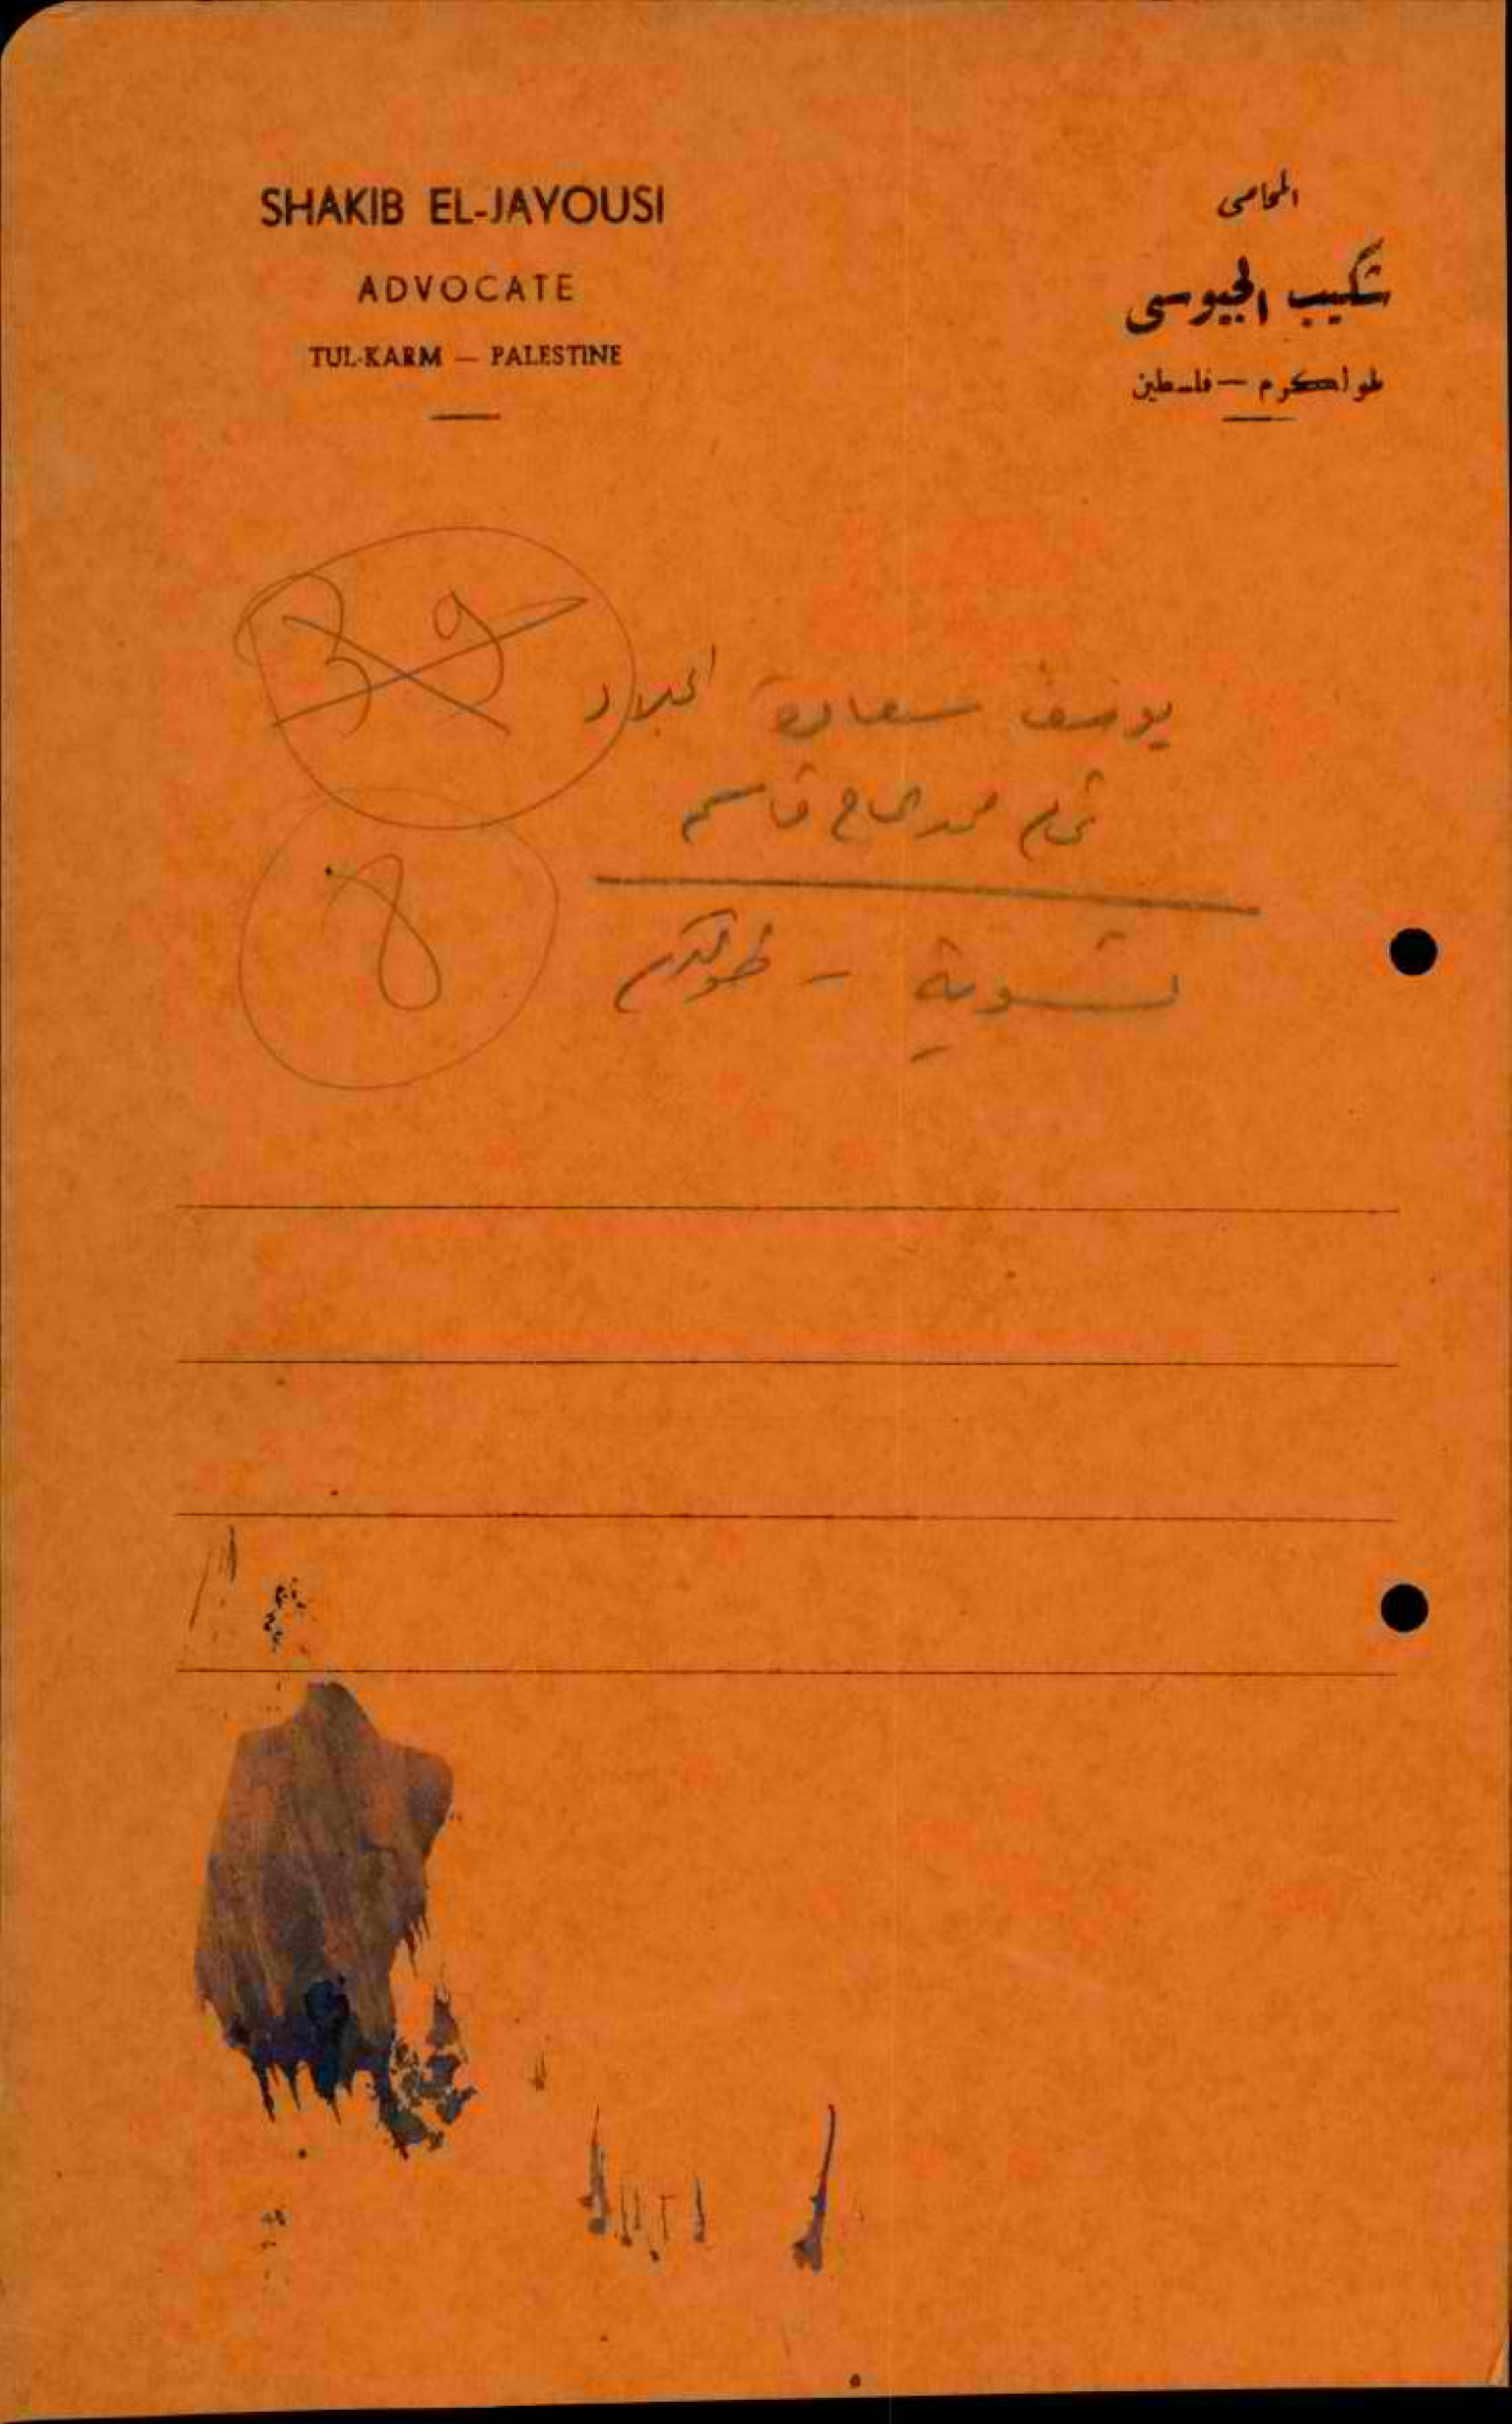 SHAKIB EL-JAYOUSI
ADVOCATE
TUL-KARM — PALESTINE
المحامى
شكيب الجيوسى
طولكرم — فلسطين
39
يوسف سعادة الجلاد
محمد الحاج قاسم
8
تسوية - طولكرم